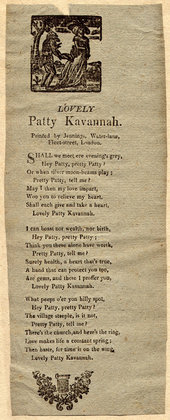 LOVELY
Patty Kavannah.
Printed by Jennings, Water-lane,
Fleet-street, London.
SHALL we meet ere evening's grey,
Hey Patty, pretty Patty?
Or when silver moon-beams play;
Pretty Patty, tell me?
May I then my love impart,
Woo you to relieve my heart,
Shall each give and take a heart,
Lovely Patty Kavannah.
I can boast nor wealth, nor birth,
Hey Patty, pretty Patty;
Think you these alone have worth,
Pretty Patty, tell me?
Surely health, a heart that's true,
A hand that can protect you too,
Are gems, and these I proffer you,
Lovely Patty Kavannah.
What peeps o'er you hilly spot,
Hey Patty, pretty Patty?
The village steeple, is it not,
Pretty Patty, tell me?
There's the church, and here's the ring,
Love makes life a constant spring;
Then haste, for time is on the wing,
Lovely Patty Kavannah.